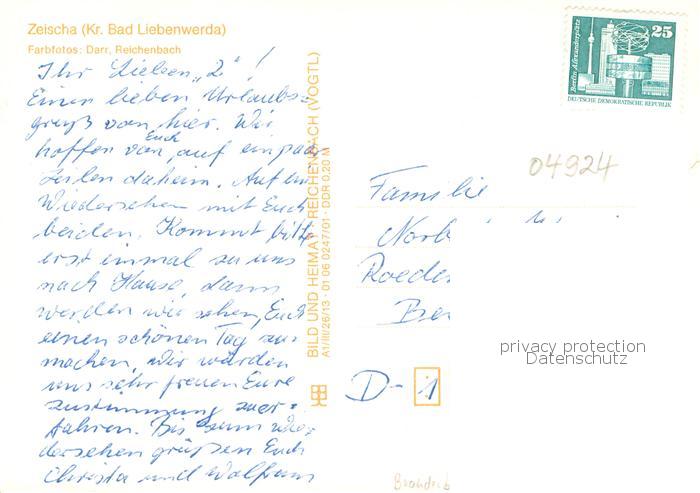 Zeischa (Kr. Bad Liebenwerda)
Farbfotos: Darr, Reichenbach
Ihr Lieben „2“!
Einen lieben Urlaubs-
gruß von hier. Wir
hoffen von Euch, auf ein paar
Zeilen daheim. Auf ein
Wiedersehen mit Euch
beiden. Kommt bitte
erst einmal zu uns
nach Hause, dann
werden wir sehen, Euch
einen schönen Tag zu
machen. Wir würden
uns sehr freuen Eure
Zustimmung zu er-
fahren. Bis zum Wie-
dersehen grüßen Euch
Christa und Wolfram
BILD UND HEIMAT REICHENBACH (VOGTL)
A1/III/26/13 · 01 06 0247/01 · DDR 0,20 M
Berlin, Alexanderplatz
25
DEUTSCHE DEMOKRATISCHE REPUBLIK
04924
Familie
Norb
Roeder
Ber
privacy protection
Datenschutz
D-1